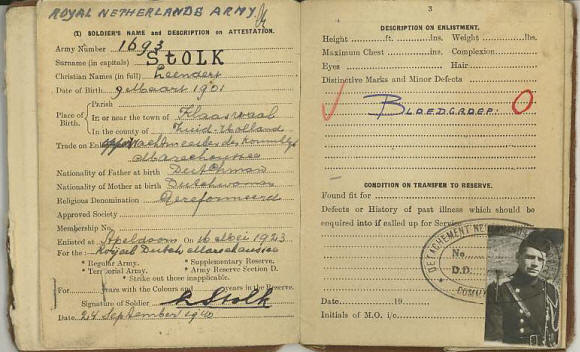 ROYAL NETHERLANDS ARMY
(1) SOLDIER'S NAME and DESCRIPTION on ATTESTATION.
Army Number 1693
Surname (in capitals) StOLK
Christian Names (in full) Leendert
Date of Birth. 9 Maart 1901
Place of Birth.
Parish
In or near the town of Klaaswaal
In the county of Zuid-Holland
Trade on Wachtmeester der Koninklyke
Marechaussee
Nationality of Father at birth Dutchman
Nationality of Mother at birth Dutchwoman
Religious Denomination Gereformeerd
Approved Society
Membership No.
Enlisted at Apeldoorn On 16 Mei 1923
For the: Royal Dutch Marechaussee
* Regular Army. * Supplementary Reserve.
* Territorial Army. * Army Reserve Section D.
* Strike out those inapplicable.
For years with the Colours and years in the Reserve.
Signature of Soldier Stolk
Date 24 September 1940
3
DESCRIPTION ON ENLISTMENT.
Height ft. ins. Weight lbs.
Maximum Chest ins. Complexion
Eyes Hair
Distinctive Marks and Minor Defects
BLOEDGROEP: O
CONDITION ON TRANSFER TO RESERVE.
Found fit for
Defects or History of past illness which should be
enquired into if called up for Service
DETACHEMENT
No.
D.D.
Date 19
Initials of M.O. i/c.